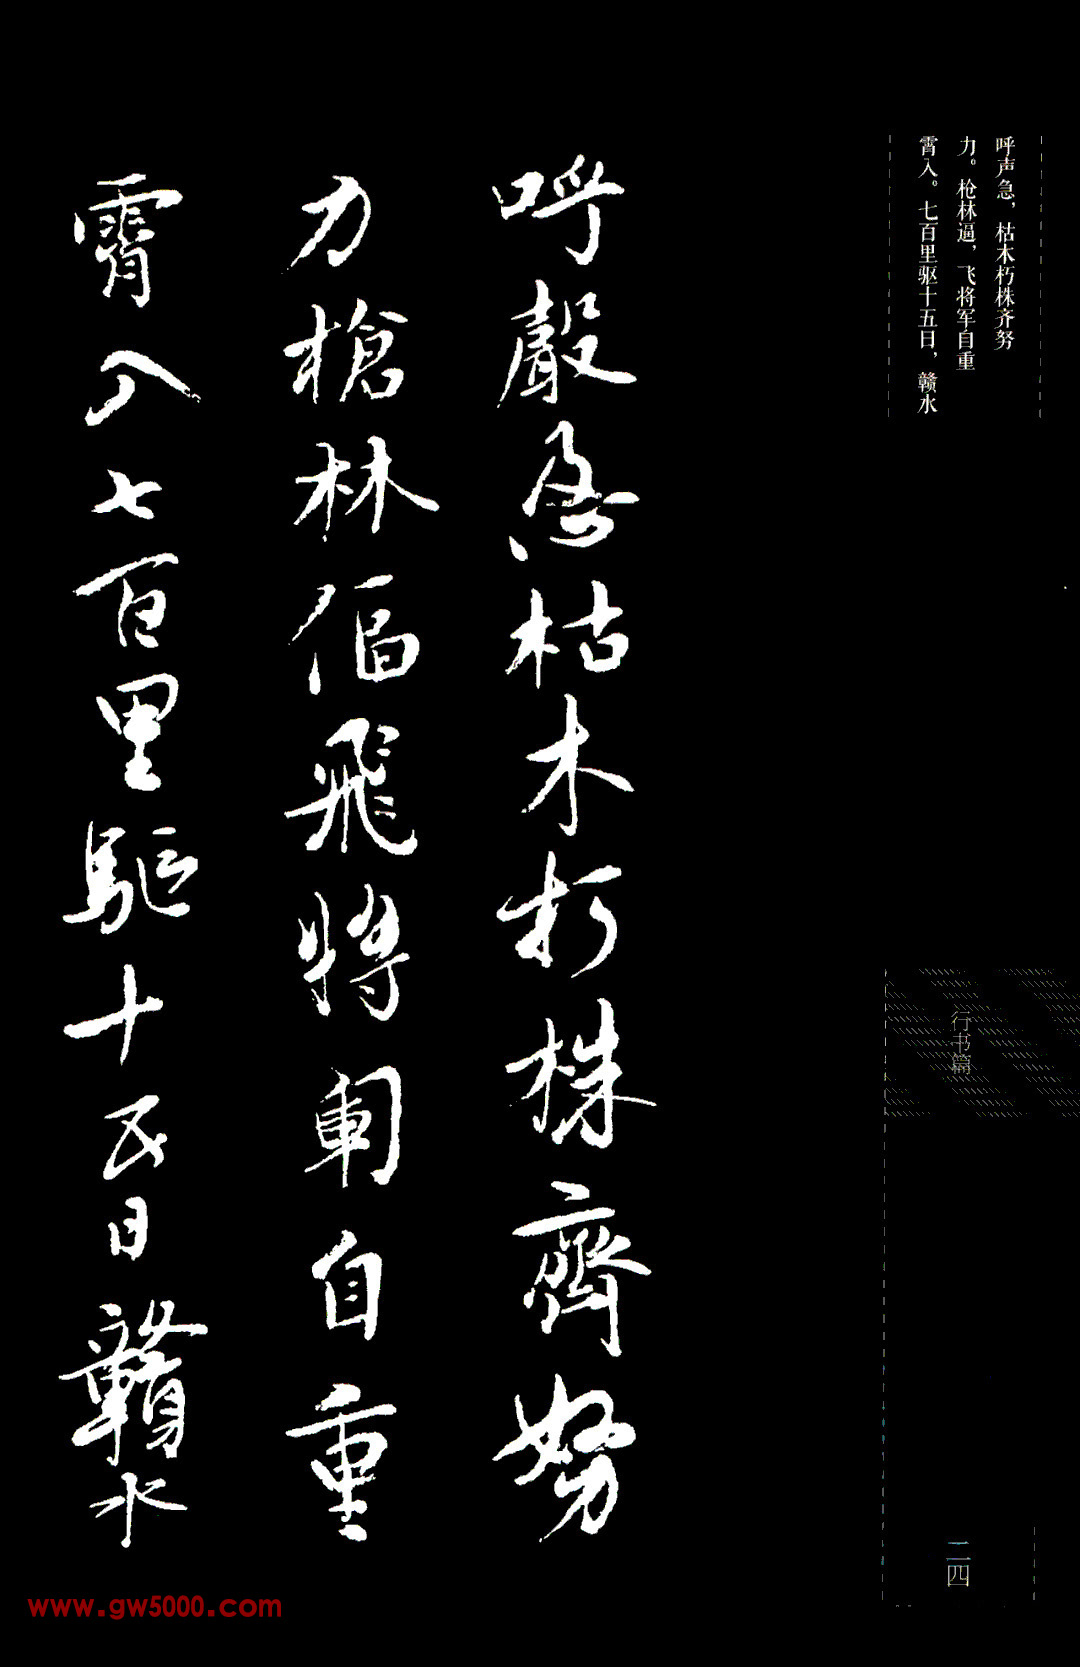 呼声急，枯木朽株齐努
力。枪林逼，飞将军自重
霄入。七百里驱十五日，赣水
呼聲急枯木朽株齊努
力槍林偪飛將軍自重
霄入七百里驅十五日贛水
行书篇
二四
www.gw5000.com